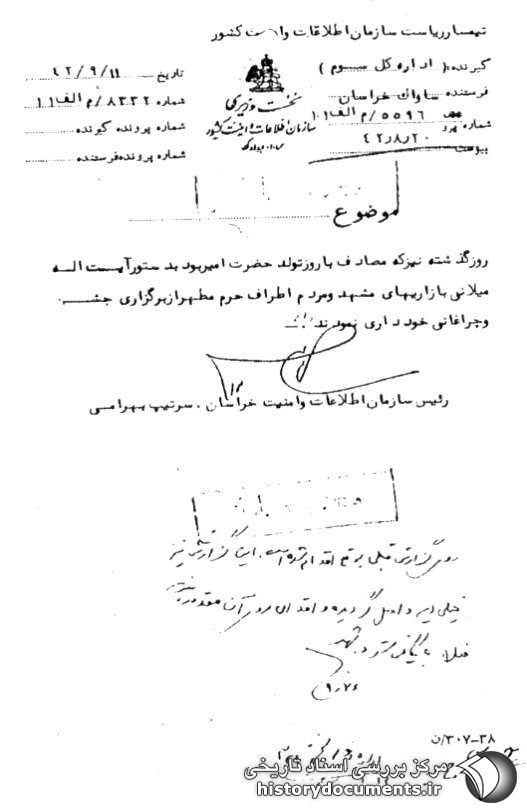 تیمسار ریاست سازمان اطلاعات و امنیت کشور
گیرنده: ( اداره کل سوم )
فرستنده ساواک خراسان
شماره پیرو ۵۵۹۶ /م الف ۱۰۱
۴۲٫۸٫۲۰
پیوست
نخست وزیری
سازمان اطلاعات و امنیت کشور
س.ا.و.ا.ک
تاریخ ۴۲/۹/۱۱
شماره ۸۳۳۲ /م الف ۱۱
شماره پرونده گیرنده
شماره پرونده فرستنده
موضوع
روز گذشته نیز که مصادف با روز تولد حضرت امیر بود بدستور آیت اله
میلانی بازاریهای مشهد و مردم اطراف حرم مطهر از برگزاری جشن
و چراغانی خودداری نمودند
رئیس سازمان اطلاعات و امنیت خراسان . سرتیپ بهرامی
روی گزارش قبلی بموقع اقدام شده است. این گزارش نیز
خیلی دیر واصل گردیده و اقدامی روی آن مقدور نیست
فعلا بایگانی شود
۹٫۲۶
۳۰۷-۳۸/ن
مرکز بررسی اسناد تاریخی
historydocuments.ir